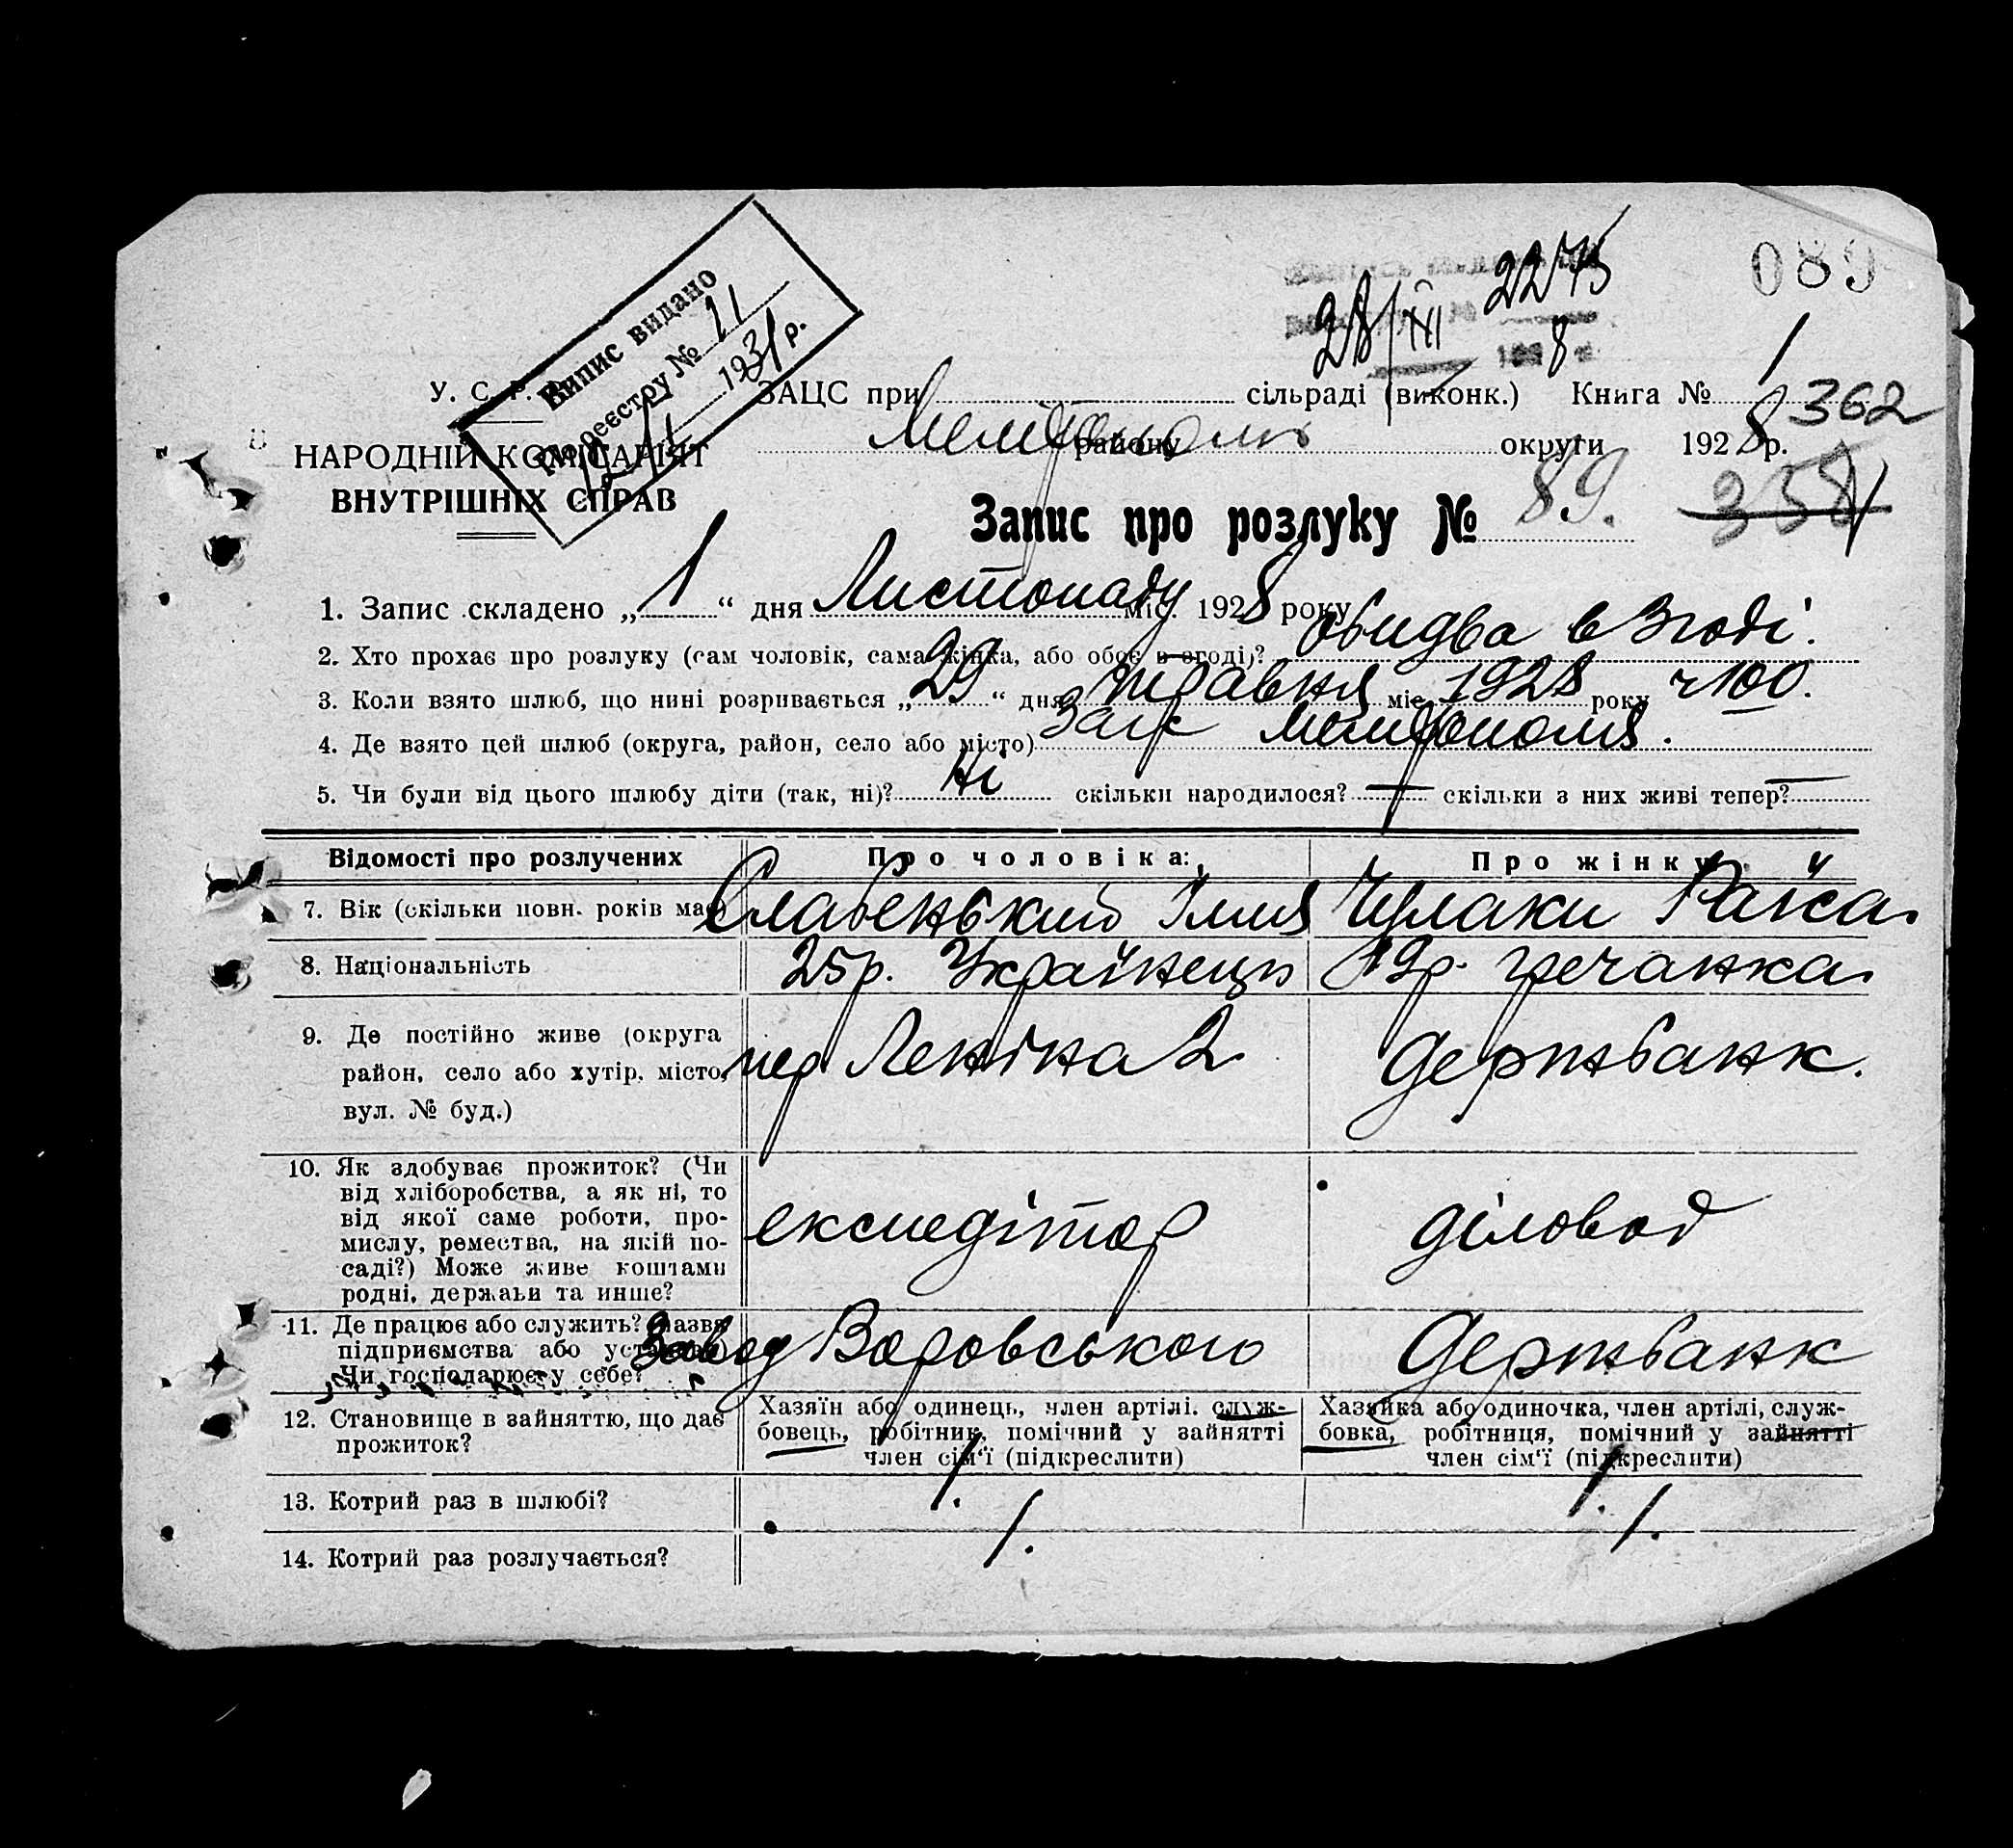 089
Випис видано
По реєстру № 11
1931 р.
2275
28/XII
8
У. С. Р. Р.
НАРОДНІЙ КОМІСАРІЯТ
ВНУТРІШНІХ СПРАВ
ЗАЦС при сільраді (виконк.) Книга № 1
362
Мелітополь району округи 1928 р.
358
Запис про розлуку № 89.
1. Запис складено „1“ дня Листопаду міс. 1928 року
2. Хто прохає про розлуку (сам чоловік, сама жінка, або обоє в згоді)? обидва в згоді.
3. Коли взято шлюб, що нині розривається „29“ дня травня міс. 1928 року ч 100.
4. Де взято цей шлюб (округа, район, село або місто) Загс Мелітополя.
5. Чи були від цього шлюбу діти (так, ні)? Ні скільки народилося? — скільки з них живі тепер? —
Відомості про розлучених Про чоловіка: Про жінку:
7. Вік (скільки повн. років має) Славенький Ілля Чулаки Раїса.
8. Національність 25р. Українець 19р. гречанка.
9. Де постійно живе (округа
район, село або хутір, місто,
вул. № буд.)
пер Леніна 2 Держбанк.
10. Як здобуває прожиток? (Чи
від хліборобства, а як ні, то
від якої саме роботи, про-
мислу, ремества, на якій по-
саді?) Може живе коштами
родні, держави та инше?
експедітор діловод
11. Де працює або служить? Назва
підприємства або установи)
Чи господарює у себе?
Завод Воровського Держбанк
12. Становище в зайняттю, що дає
прожиток?
Хазяїн або одинець, член артілі, служ-
бовець, робітник, помічний у зайнятті
член сім'ї (підкреслити)
Хазяйка або одиночка, член артілі, служ-
бовка, робітниця, помічний у зайнятті
член сім'ї (підкреслити)
13. Котрий раз в шлюбі? 1. 1.
14. Котрий раз розлучається? 1. 1.